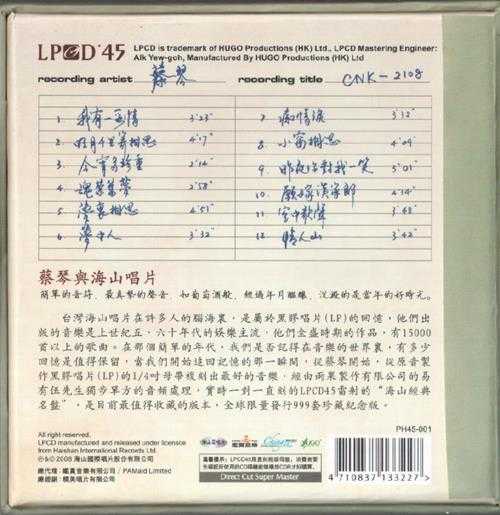 LPCD'45
LPCD is trademark of HUGO Productions (HK) Ltd., LPCD Mastering Engineer:
Aik Yew-goh, Manufactured By HUGO Productions (HK) Ltd
recording artist 蔡琴 recording title CNK-2108
1 我有一段情 3'23"
2 明月千里寄相思 4'17"
3 今宵多珍重 2'14"
4 魂縈舊夢 2'58"
5 夢裏相思 4'51"
6 夢中人 3'32"
7 痴情淚 3'12"
8 小窗相思 4'09
9 昨夜你對我一笑 5'01"
10 願嫁漢家郎 4'14"
11 空中歌聲 3'48"
12 情人山 3'42"
蔡琴與海山唱片
簡單的音符、最真摯的聲音，如葡萄酒般，經過年月醞釀，沉澱的是當年的好時光。
台灣海山唱片在許多人的腦海裏，是屬於黑膠唱片(LP)的回憶，他們出
版的音樂是上世紀五、六十年代的娛樂主流，他們全盛時期的作品，有15000
首以上的歌曲。在那個簡單的年代，我們是否記得在音樂的世界裏，有多少
回憶是值得保留，當我們開始追回記憶的那一瞬間，從蔡琴開始，從原音製
作黑膠唱片(LP)的1/4吋母帶複刻出最好的音樂，經由雨果製作有限公司的易
有伍先生獨步單方的音頻處理，實時一對一直刻的LPCD45雷射的「海山經典
名盤」，是目前最值得收藏的版本，全球限量發行999套珍藏紀念版。
PH45-001
All right reserved.
LPCD manufactured and released under licensee
from Haishan International Records Ltd
℗&© 2008 海山國際唱片股份有限公司
總代理：鑑真音樂有限公司 / PAMaid Limited
總經銷：精美唱片有限公司
HUGO
Direct Cut Super Master
4 710837 133227